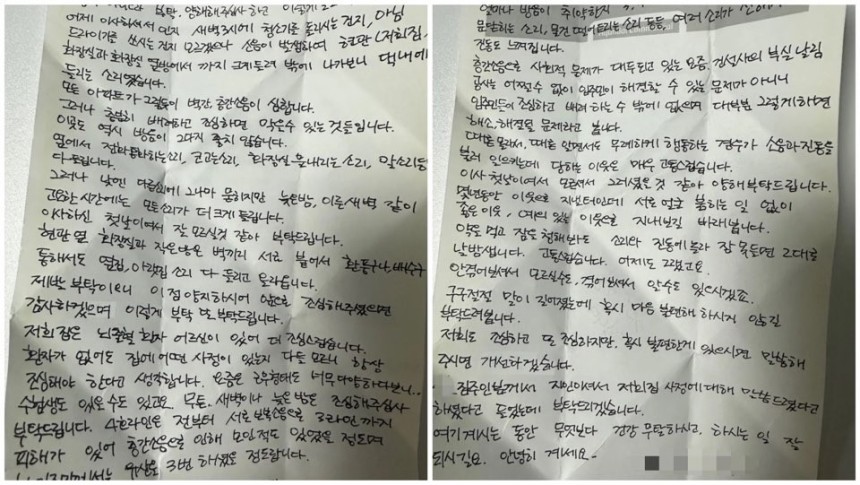 부탁, 양해해주십사 하고 이렇게
어제 이사하셔서 인지 새벽3시에 청소기를 돌리시는 건지, 아님
드라이기를 쓰시는 건지 모르겠으나 소음이 발생하여 현관(저희집,
화장실과 화장실 옆방에서 까지 크게 들려 밖에 나가보니 댁내에
들리는 소리였습니다.
모든 아파트가 그렇듯이 벽간, 층간소음이 심합니다.
그러나 충분히 배려하고 조심하면 막을수 있는 것들입니다.
이곳도 역시 방음이 그다지 좋지 않습니다.
옆에서 전화통화하는소리, 코고는소리, 화장실 물내리는 소리, 말소리등
다 들립니다.
그러나 낮엔 다른소리에 그나마 묻히지만 늦은밤, 이른새벽 같이
고요한 시간에는 모든소리가 더 크게 들립니다.
이사하신 첫날이어서 잘 모르실것 같아 부탁드립니다.
현관 옆 화장실과 작은방은 벽까지 서로 붙어서 환풍구나, 배수구
통해서도 옆집, 아랫집 소리 다 들리고 올라옵니다.
제발 부탁이오니 이 점 양지하시어 앞으로 조심해주셨으면
감사하겠으며 이렇게 부탁 또 부탁드립니다.
저희집은 뇌출혈 환자 어르신이 있어 더 조심스럽습니다.
환자가 없어도 집에 어떤 사정이 있는지 다들 모르니 항상
조심해야 한다고 생각합니다. 요즘은 근무형태도 너무 다양하다보니..
수험생도 있을수도 있고요. 무튼, 새벽이나 늦은 밤은 조심해주십사
부탁드립니다. 4호라인은 전부터 서로 보복소음으로 3라인 까지
피해가 있어 층간소음으로 인해 모인적도 있었을 정도며
3번 하셨을 정도랍니다.
얼마나 방음이 취약한지
문닫히는 소리, 물건 떨어트리는소리 등등, 여러 소리가
진동도 느껴집니다.
층간소음으로 사회적 문제가 대두되고 있는 요즘, 건설사의 부실 날림
공사는 어쩔수 없이 입주민이 해결할 수 있는 문제가 아니니
입주민들이 조심하고 배려하는 수 밖에 없으며 대부분 그렇게하면
해소, 해결될 문제라고 봅니다.
때론 몰라서, 때론 알면서도 무례하게 행동하는 경우가 소음과 진동을
불러 일으키는데 당하는 이웃은 매우 고통스럽습니다.
이사 첫날이여서 모르셔서 그러셨을 것 같아 양해부탁드립니다.
몇년동안 이웃으로 지낼터인데 서로 얼굴 붉히는 일 없이
좋은 이웃, 예의 있는 이웃으로 지내보길 바래봅니다.
약도 먹고 잠을 청해봐도 소리와 진동에 놀라 잠 못들면 그대로
날밤샙니다. 고통스럽습니다. 어제도 그랬고요.
안겪어보셔서 모르실수도, 겪어보셔서 알수도 있으시겠죠.
구구절절 말이 길어졌는데 혹시 마음 불편해 하시지 않길
부탁드려봅니다.
저희도 조심하고 또 조심하지만, 혹시 불편한게 있으시면 말씀해
주시면 개선하겠습니다.
집주인분께서 지인이셔서 저희집 사정에 대해 말씀드렸다고
하셨다고 들었는데 부탁드리겠습니다.
여기 계시는 동안 무엇보다 건강 무탈하시고, 하시는 일 잘
되시길요. 안녕히 계세요-